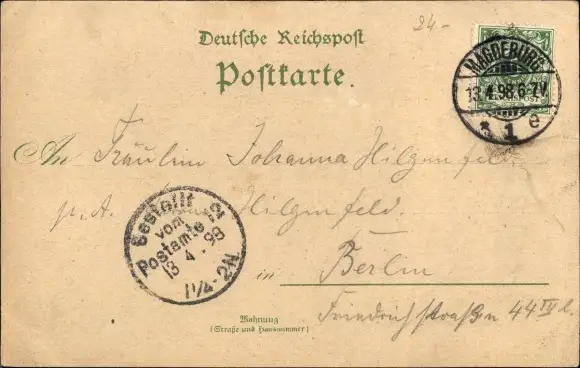 24.-
Deutsche Reichspost
Postkarte.
MAGDEBURG
13.4.98.6-7V.
* 1 e
An Fräulein Johanna Hilgenfeld.
p. A. Hilgenfeld.
Bestellt
vom
Postamte
13 4. 98
1¼-2N
in Berlin
Wohnung
(Straße und Hausnummer)
Friedrichstraße 44 IV l.